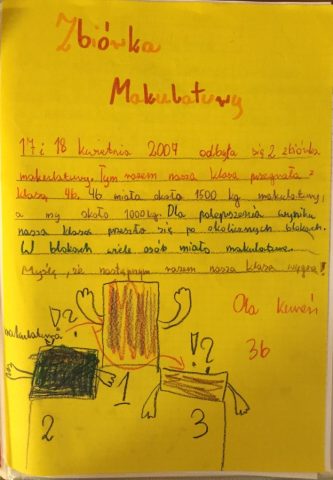 Zbiórka
Makulatury
17 i 18 kwietnia 2007 odbyła się 2 zbiórka
makulatury. Tym razem nasza klasa przegrała z
klasą 4b. 4b miała około 1500 kg makulatury,
a my około 1000kg. Dla polepszenia wyniku
nasza klasa przeszła się po okolicznych blokach.
W blokach wiele osób miało makulature.
Myślę, że następnym razem nasza klasa wygra!
Ola
3b
makulatura
!?
!?
1
2
3